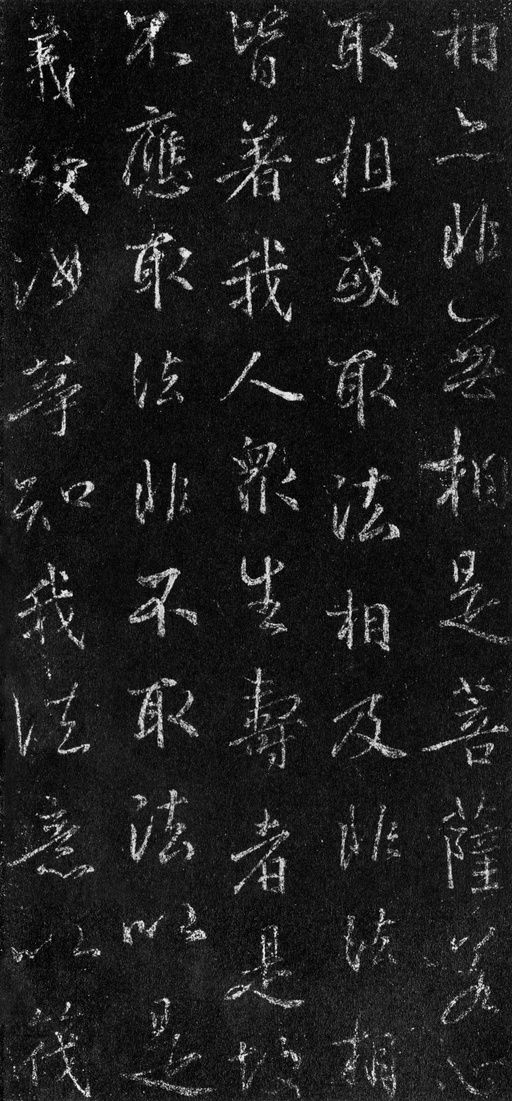 相亦非無相是菩薩若心
取相或取法相及非法相
皆著我人衆生壽者是故
不應取法非不取法以是
義故汝等知我法意以筏